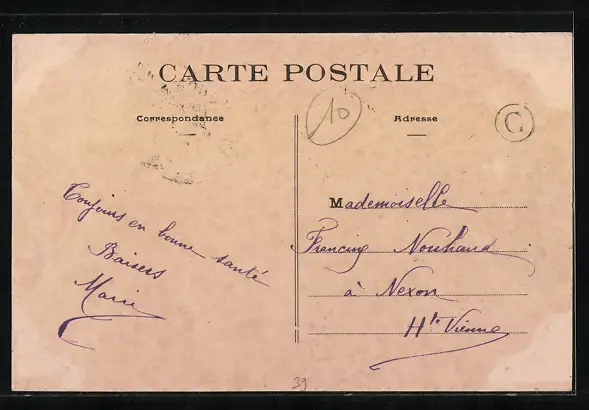 CARTE POSTALE
10
C
Correspondance
Adresse
Toujours en bonne santé
Baisers
Marie
Mademoiselle
Francine Nouhaud
à Nexon
Hte Vienne
39